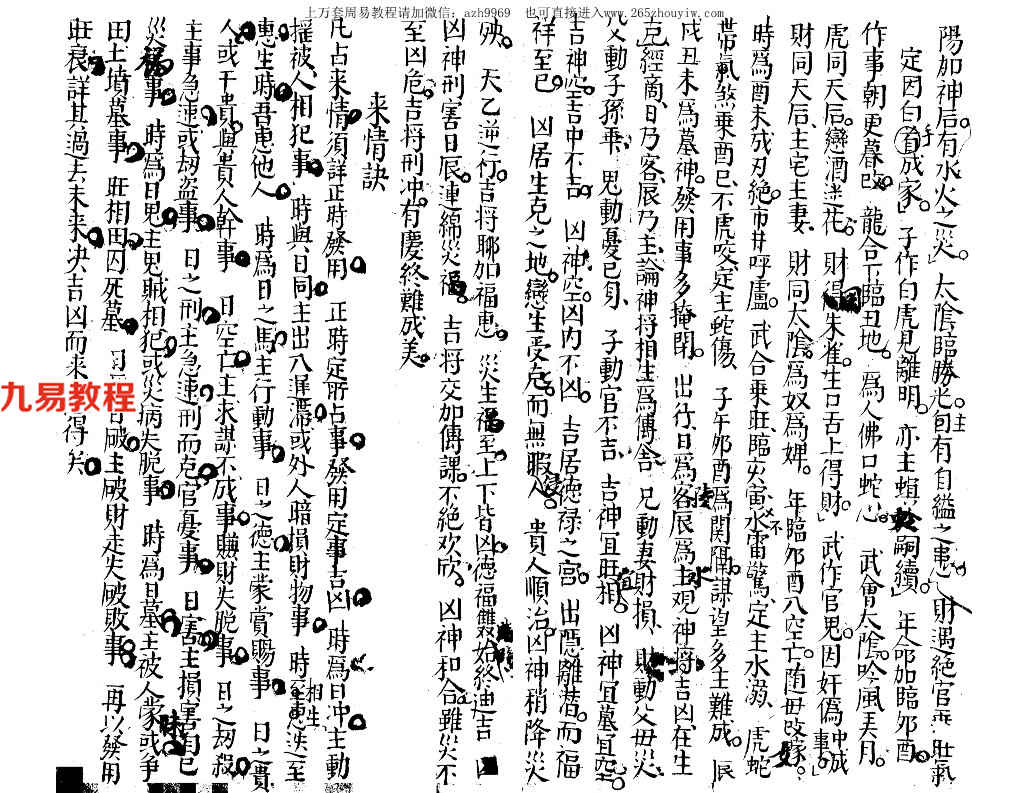 上万套周易教程请加微信：azh9969 也可直接进入www.265zhouyiw.com
陽加神后有水火之災。太陰臨勝光主自有自縊之患。財遇絕官乘旺氣
定因白首成家。子作白虎見離明。亦主螟蛉嗣續。年命加臨夘酉。
作事朝更暮改。龍合下臨丑地。為人佛口蛇心。武會太陰吟風弄月。
虎同天后。戀酒迷花。財得朱雀。生口舌上得財。武作官鬼。因奸偽事中成
財同天后。主宅主妻。財同太陰。為奴為婢。年臨夘酉八空亡随母改嫁。
時為酉未戌刃絕。市井呼盧。武合乗旺。臨火寅水不雷驚。定主水溺。虎蛇
帯氣煞乗酉巳。不虎咬。定主蛇傷。子午夘酉為関隔。謀望多主難成。辰
戌丑未為墓神。發用事多掩閉。出行。日為客辰為主。觀神将吉凶。在生
克。經商。日乃客。辰乃主。論神将相生為傳合。兄動妻財損。財動父母災
父動子孫乖。鬼動憂己身。子動官不吉。吉神宜旺相。凶神宜墓宜空。
吉神空。吉中不吉。凶神空。凶内不凶。吉居德禄之宫。出隠離潜。而福
祥至已。凶居生克之地。戀生受克。而無暇侵人。貴人順治。凶神稍降災
殃。天乙逆行。吉将聊加福惠。災主福至。上下皆凶。德福雙
凶神刑害日辰。連綿災福。吉将交加傳課。不絕欢欣。凶神和合。雖災不
至凶危。吉将刑冲。有慶終難成美。
来情訣
凡占来情須詳正時發用 正時定所占事發用定事吉凶 時為日冲主動
摇被人相犯事 時與日同主出入遲滯或外人暗損財物事 時至相生
惠生時吾惠他人 時為日之馬主行動事 日之德主蒙賞賜事 日之貴
人或干貴與貴人幹事 日空亡主求謀不成事賊財失脱事 日之刼殺
主事急速或刼盗事 日之刑主急速刑而克官憂事 日害主損害自已
災禍事 時為日鬼主鬼賊相犯或災病失脱事 時為日墓主被人蒙昧或争
田土墳墓事 旺相田囚死墓 破主破財走失破敗事 再以發用
旺衰詳其過去未来决吉凶而来 得矣
九易教程